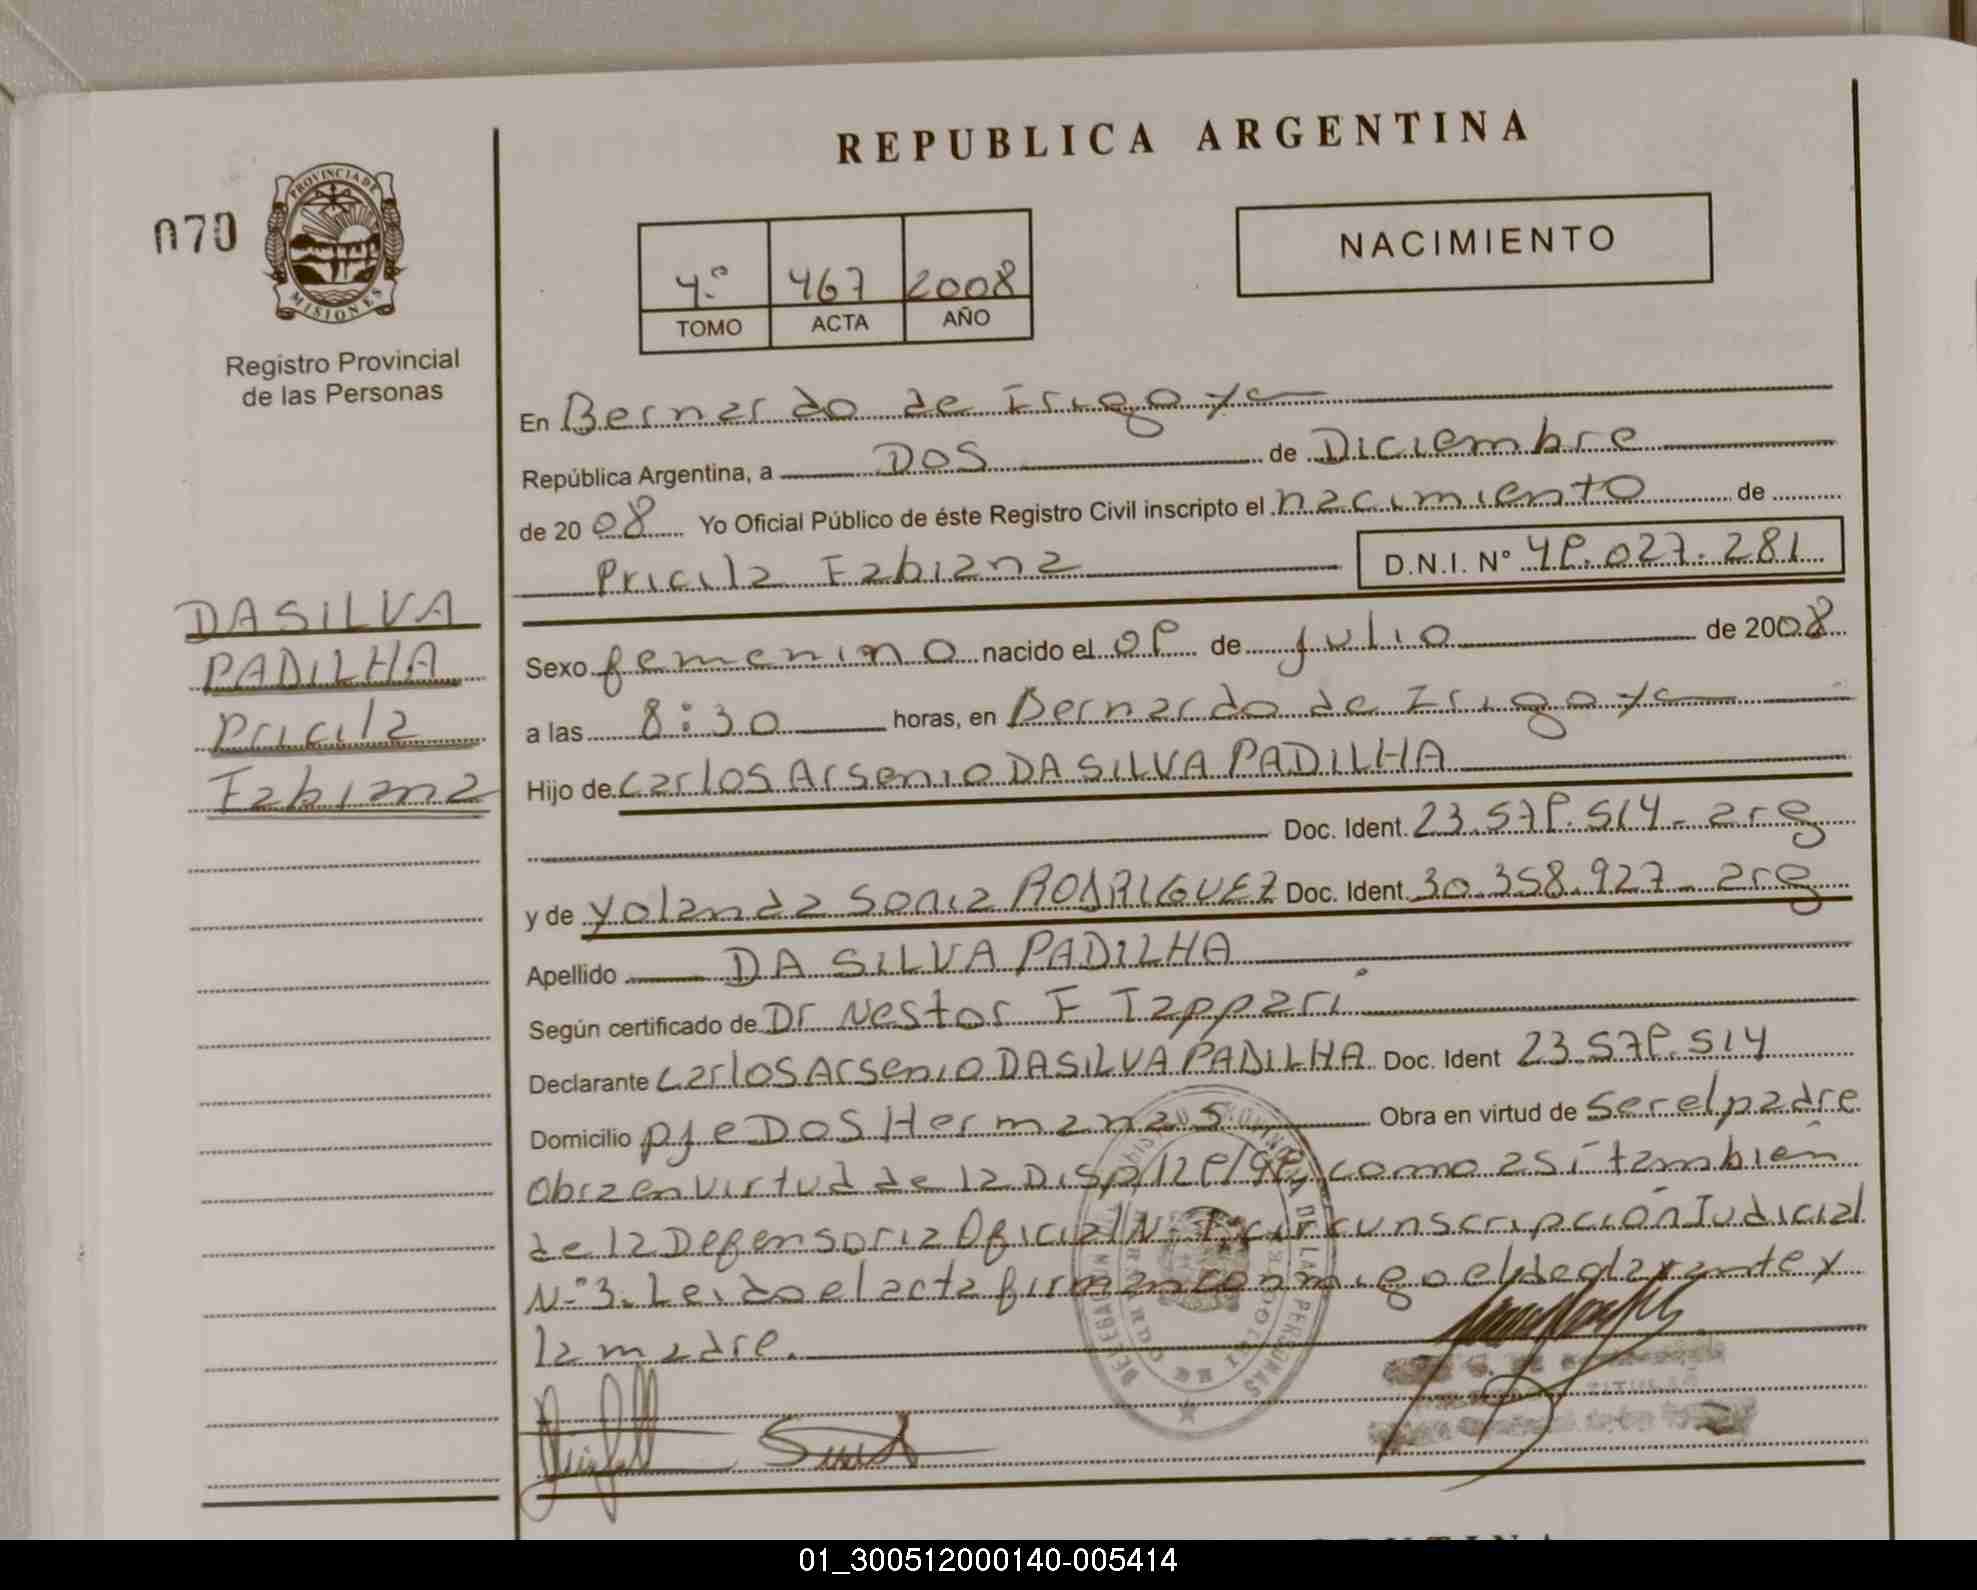 REPUBLICA ARGENTINA
070
PROVINCIA DE
MISIONES
Registro Provincial
de las Personas
NACIMIENTO
4.º 467 2008
TOMO ACTA AÑO
En Bernardo de Irigoye
República Argentina, a DOS de Diciembre
de 2008 Yo Oficial Público de éste Registro Civil inscripto el nacimiento de
Pricila Fabiana D.N.I. Nº 49.027.281
DA SILVA
PADILHA
Pricila
Fabiana
Sexo femenino nacido el 09 de julio de 2008
a las 8:30 horas, en Bernardo de Irigoye
Hijo de Carlos Arsenio DA SILVA PADILHA
Doc. Ident. 23.579.514 - arg
y de Yolanda Sonia RODRIGUEZ Doc. Ident. 30.358.927 - arg
Apellido DA SILVA PADILHA
Según certificado de Dr Nestor F Tappari
Declarante Carlos Arsenio DA SILVA PADILHA Doc. Ident 23.579.514
Domicilio pje DOS Hermanas Obra en virtud de ser el padre
Obra en virtud de la Disp 129/99 como asi tambien
de la Defensoria Oficial N.º 1, circunscripción Judicial
N.º 3. Leido el acta firman conmigo el declarante y
la madre.
01_300512000140-005414